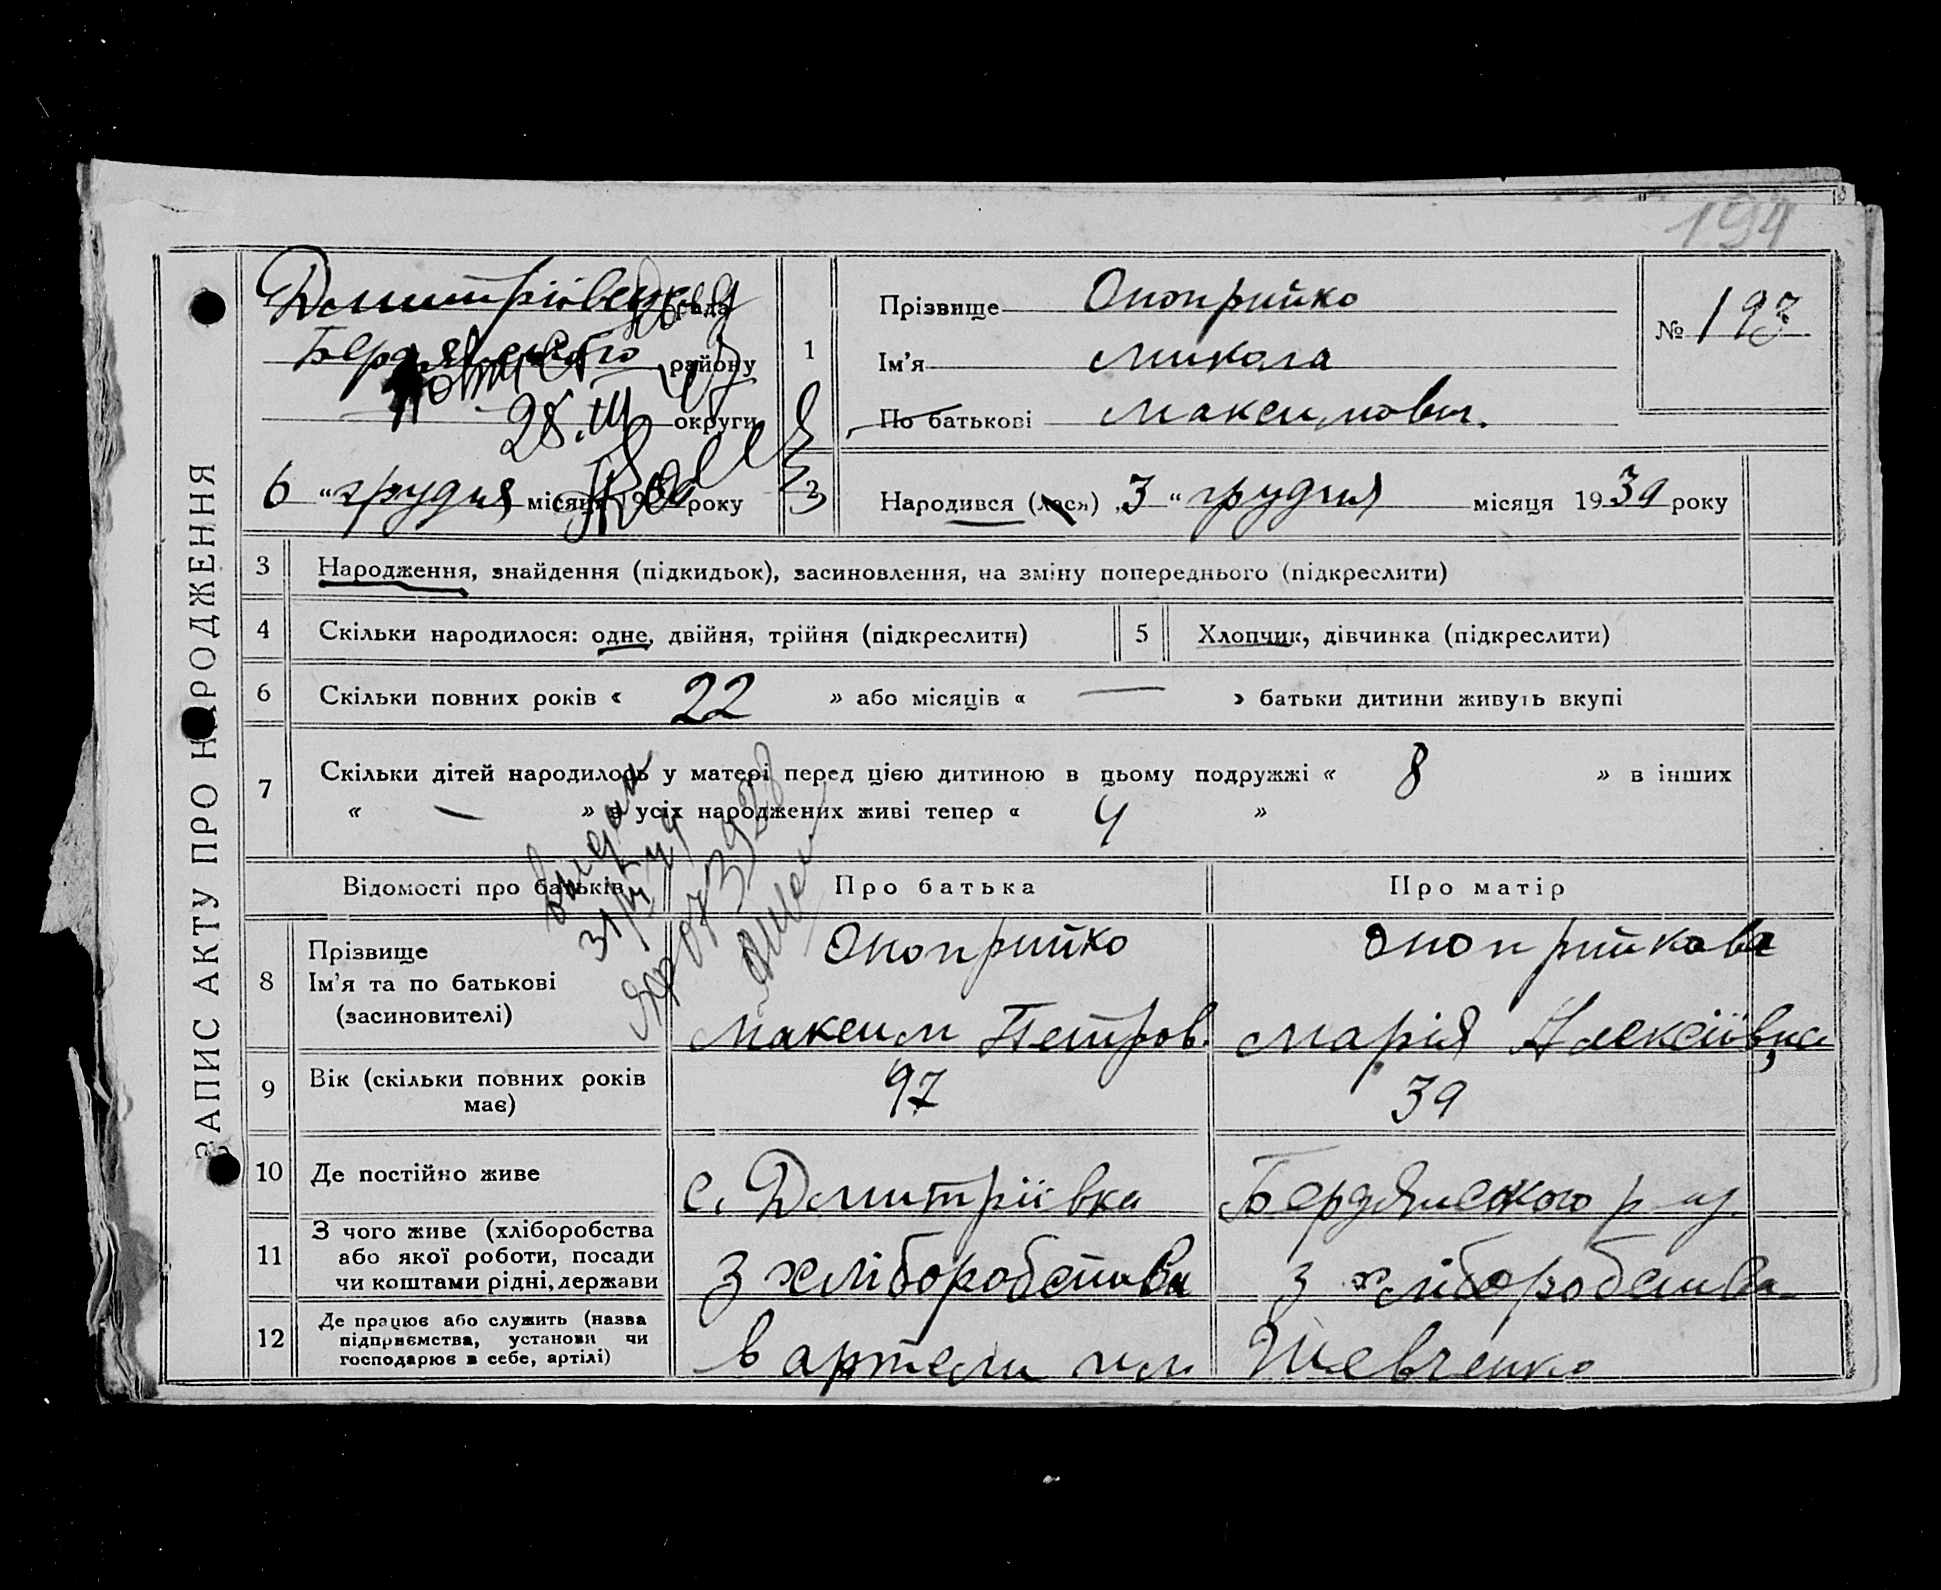 194
ЗАПИС АКТУ ПРО НАРОДЖЕННЯ
Дмитріівська рада
Бердянського району
округи
28.III
6 "грудня місяця 1939 року
1
Прізвище Оноприйко
Ім'я Микола
По батькові Максимович.
№ 193
2
Народився (лась) „3" грудня місяця 1939 року
3 Народження, знайдення (підкидьок), засиновлення, на зміну попереднього (підкреслити)
4 Скільки народилося: одне, двійня, трійня (підкреслити) 5 Хлопчик, дівчинка (підкреслити)
6 Скільки повних років « 22 » або місяців « — » батьки дитини живуть вкупі
7 Скільки дітей народилось у матері перед цією дитиною в цьому подружжі « 8 » в інших
« — » з усіх народжених живі тепер « 4 »
Відомості про батьків Про батька Про матір
8 Прізвище
Ім'я та по батькові
(засиновителі)
Оноприйко Оноприйкова
Максим Петров. Марія Алексіівна
9 Вік (скільки повних років має) 47 39
10 Де постійно живе с. Дмитріівка Бердянського р-ну.
11 З чого живе (хліборобства
або якої роботи, посади
чи коштами рідні, держави
з хліборобства з хліборобства
12 Де працює або служить (назва
підприємства, установи чи
господарює в себе, артілі)
в артели им. Шевченко